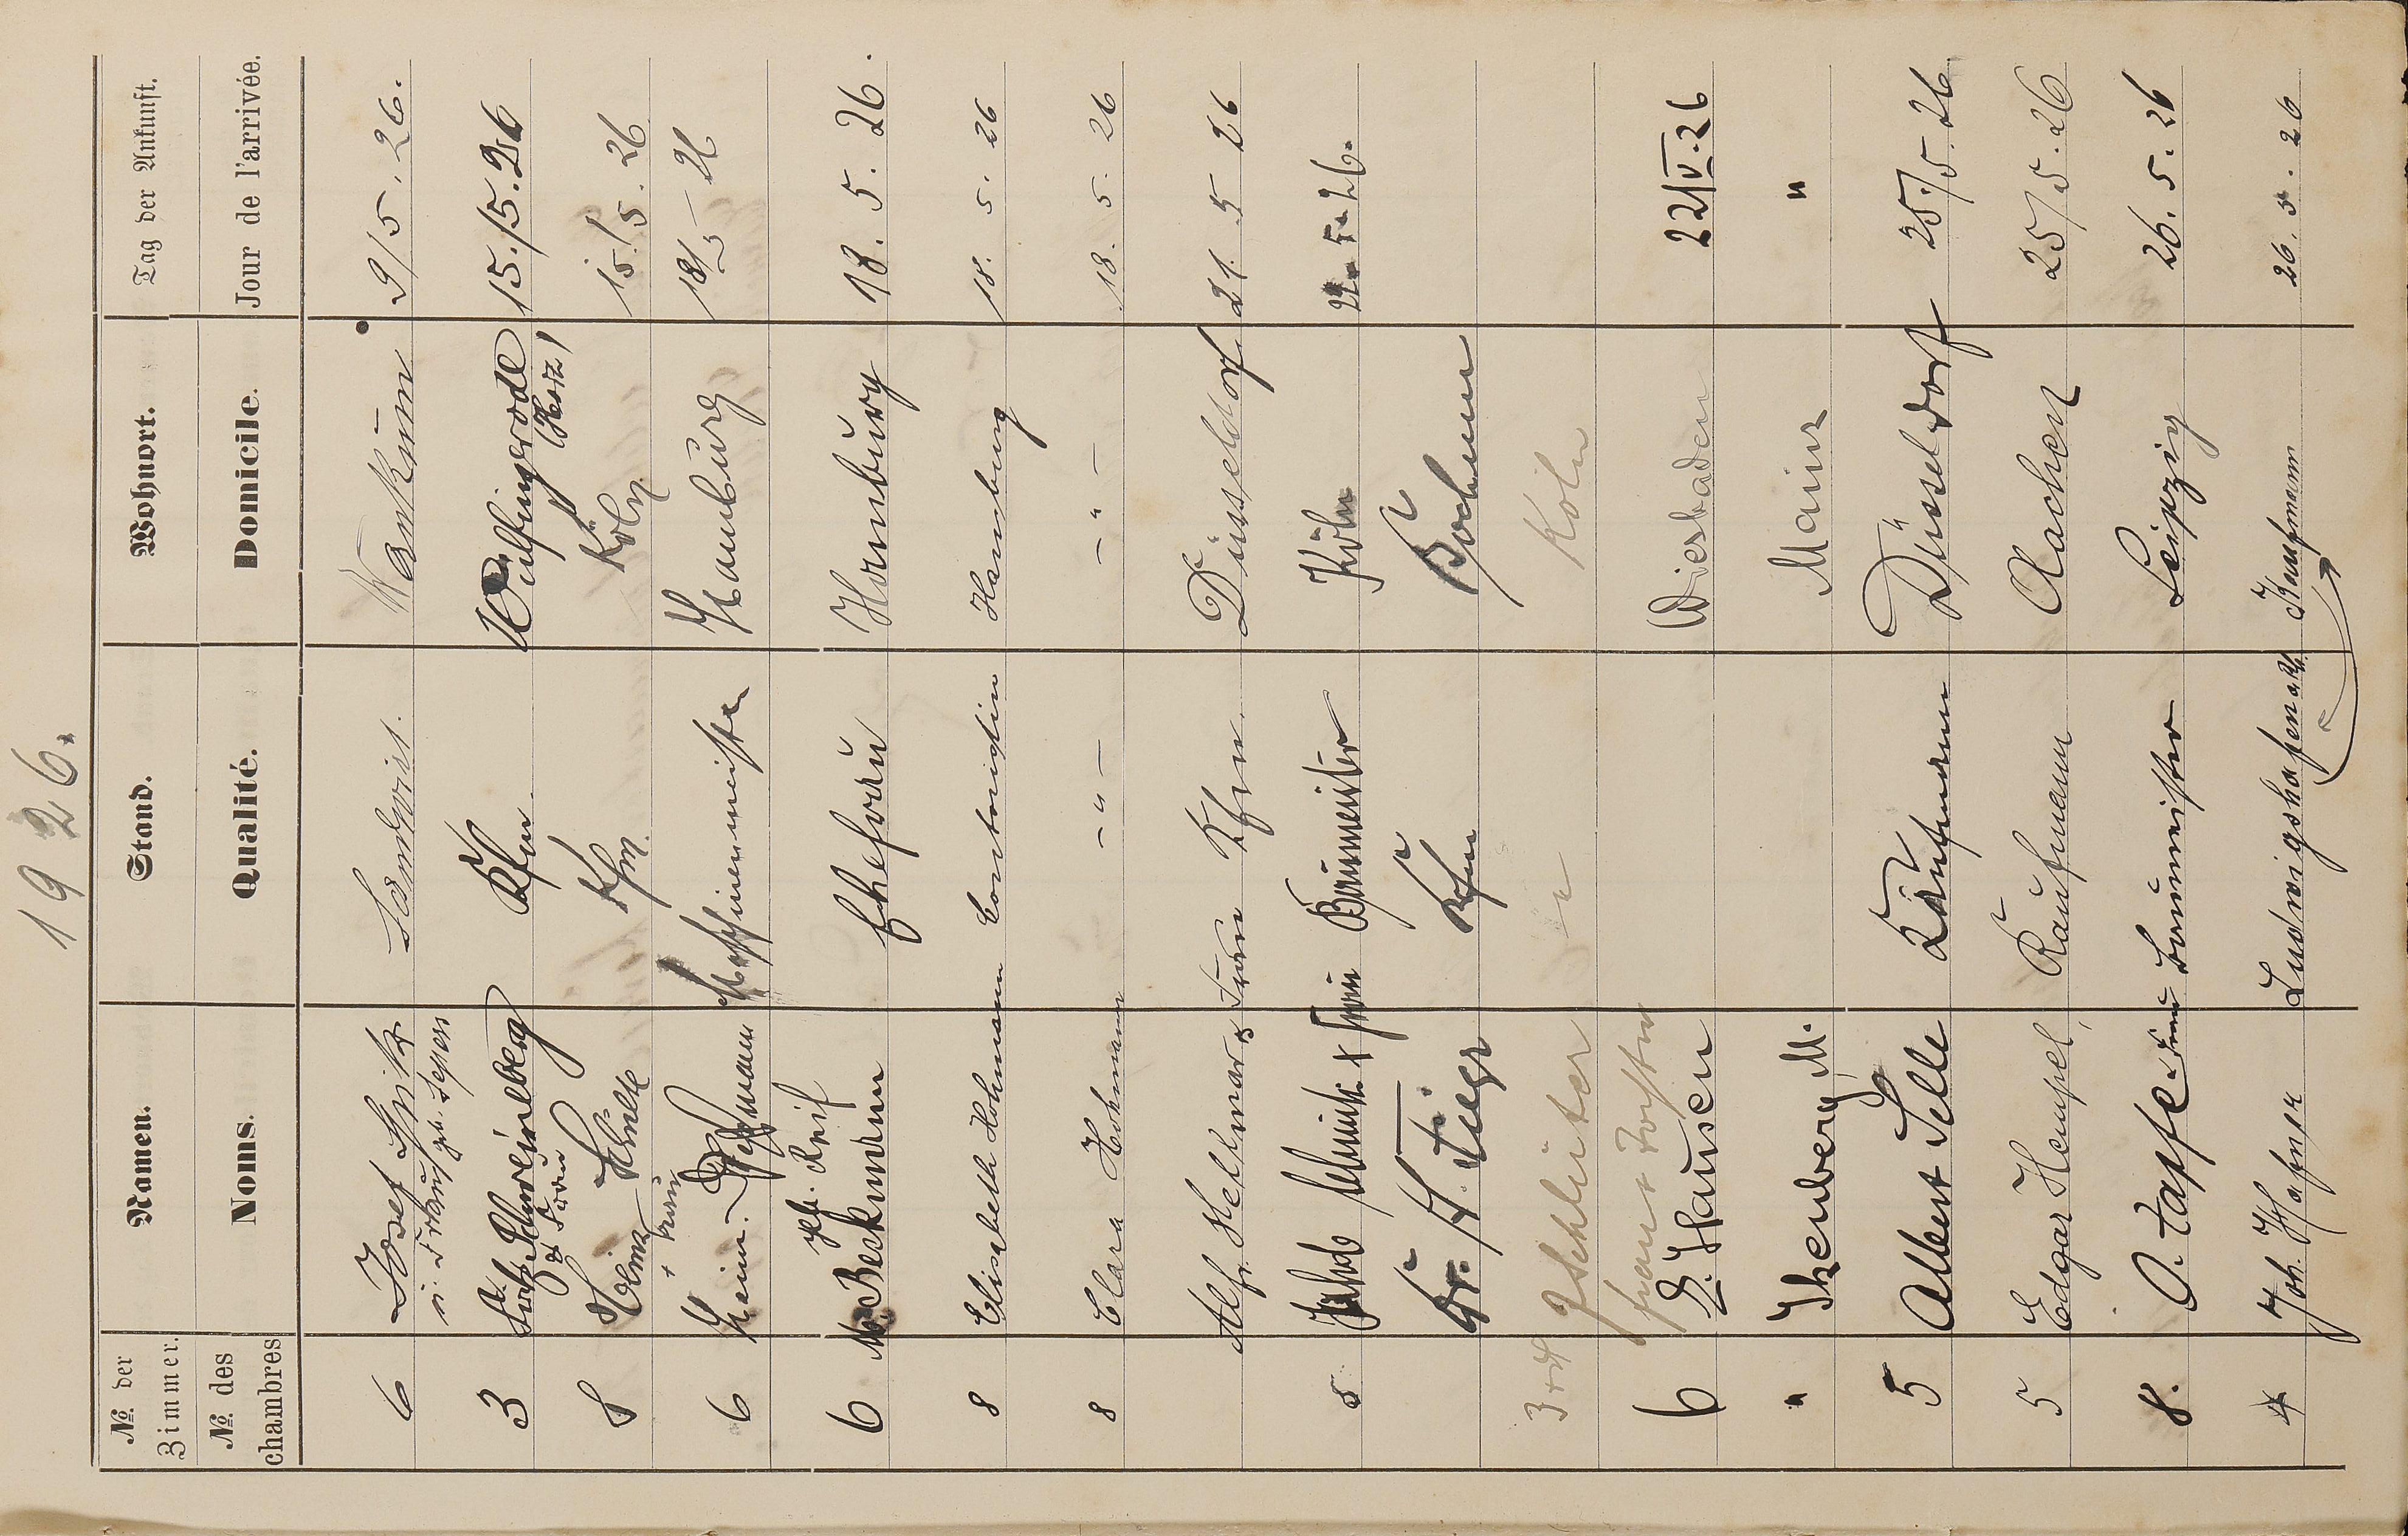 1926.
№. der Zimmer. Namen. Stand. Wohnort. Tag der Ankunft.
№. des chambres Noms. Qualité. Domicile. Jour de l'arrivée.
6 Josef Landwirt. Wankum 9/5. 26.
u. Frau geb.
3 Schweinberg Kfm Wülfingerode 15./5. 26
& Frau (Harz)
8 Heinz Schulte Kfm. Köln 15./5. 26
+ Frau
6 Hein. Hamburg 18/5 – 26
geb. Reif
6 M. Beckmann Ehefrau Hamburg 18. 5. 26.
8 Elisabeth Hohmann Contoristin Hamburg 18. 5. 26
8 Clara Hohmann – " – – " – 18. 5. 26
Alfr. Hellmar & Frau Kfm. Düsseldorf 21. 5 26
5 Schmidt & Frau Baumeister Köln 22. 5. 26.
Dr. H. Kfm Bochum
3 J Schlüter Köln
Frau +
6 Hausen Wiesbaden 22/V. 26
" Ikenberg M. Mainz "
5 Albert Selle Kaufmann Düsseldorf 25./5. 26
5 Edgar Hempel, Kaufmann Aachen 25/5. 26
8. O. Tapfe u. Frau Baumeister Leipzig 26. 5. 26
4 Joh. Hafner Ludwigshafen a/Rh. Kaufmann 26. 5. 26